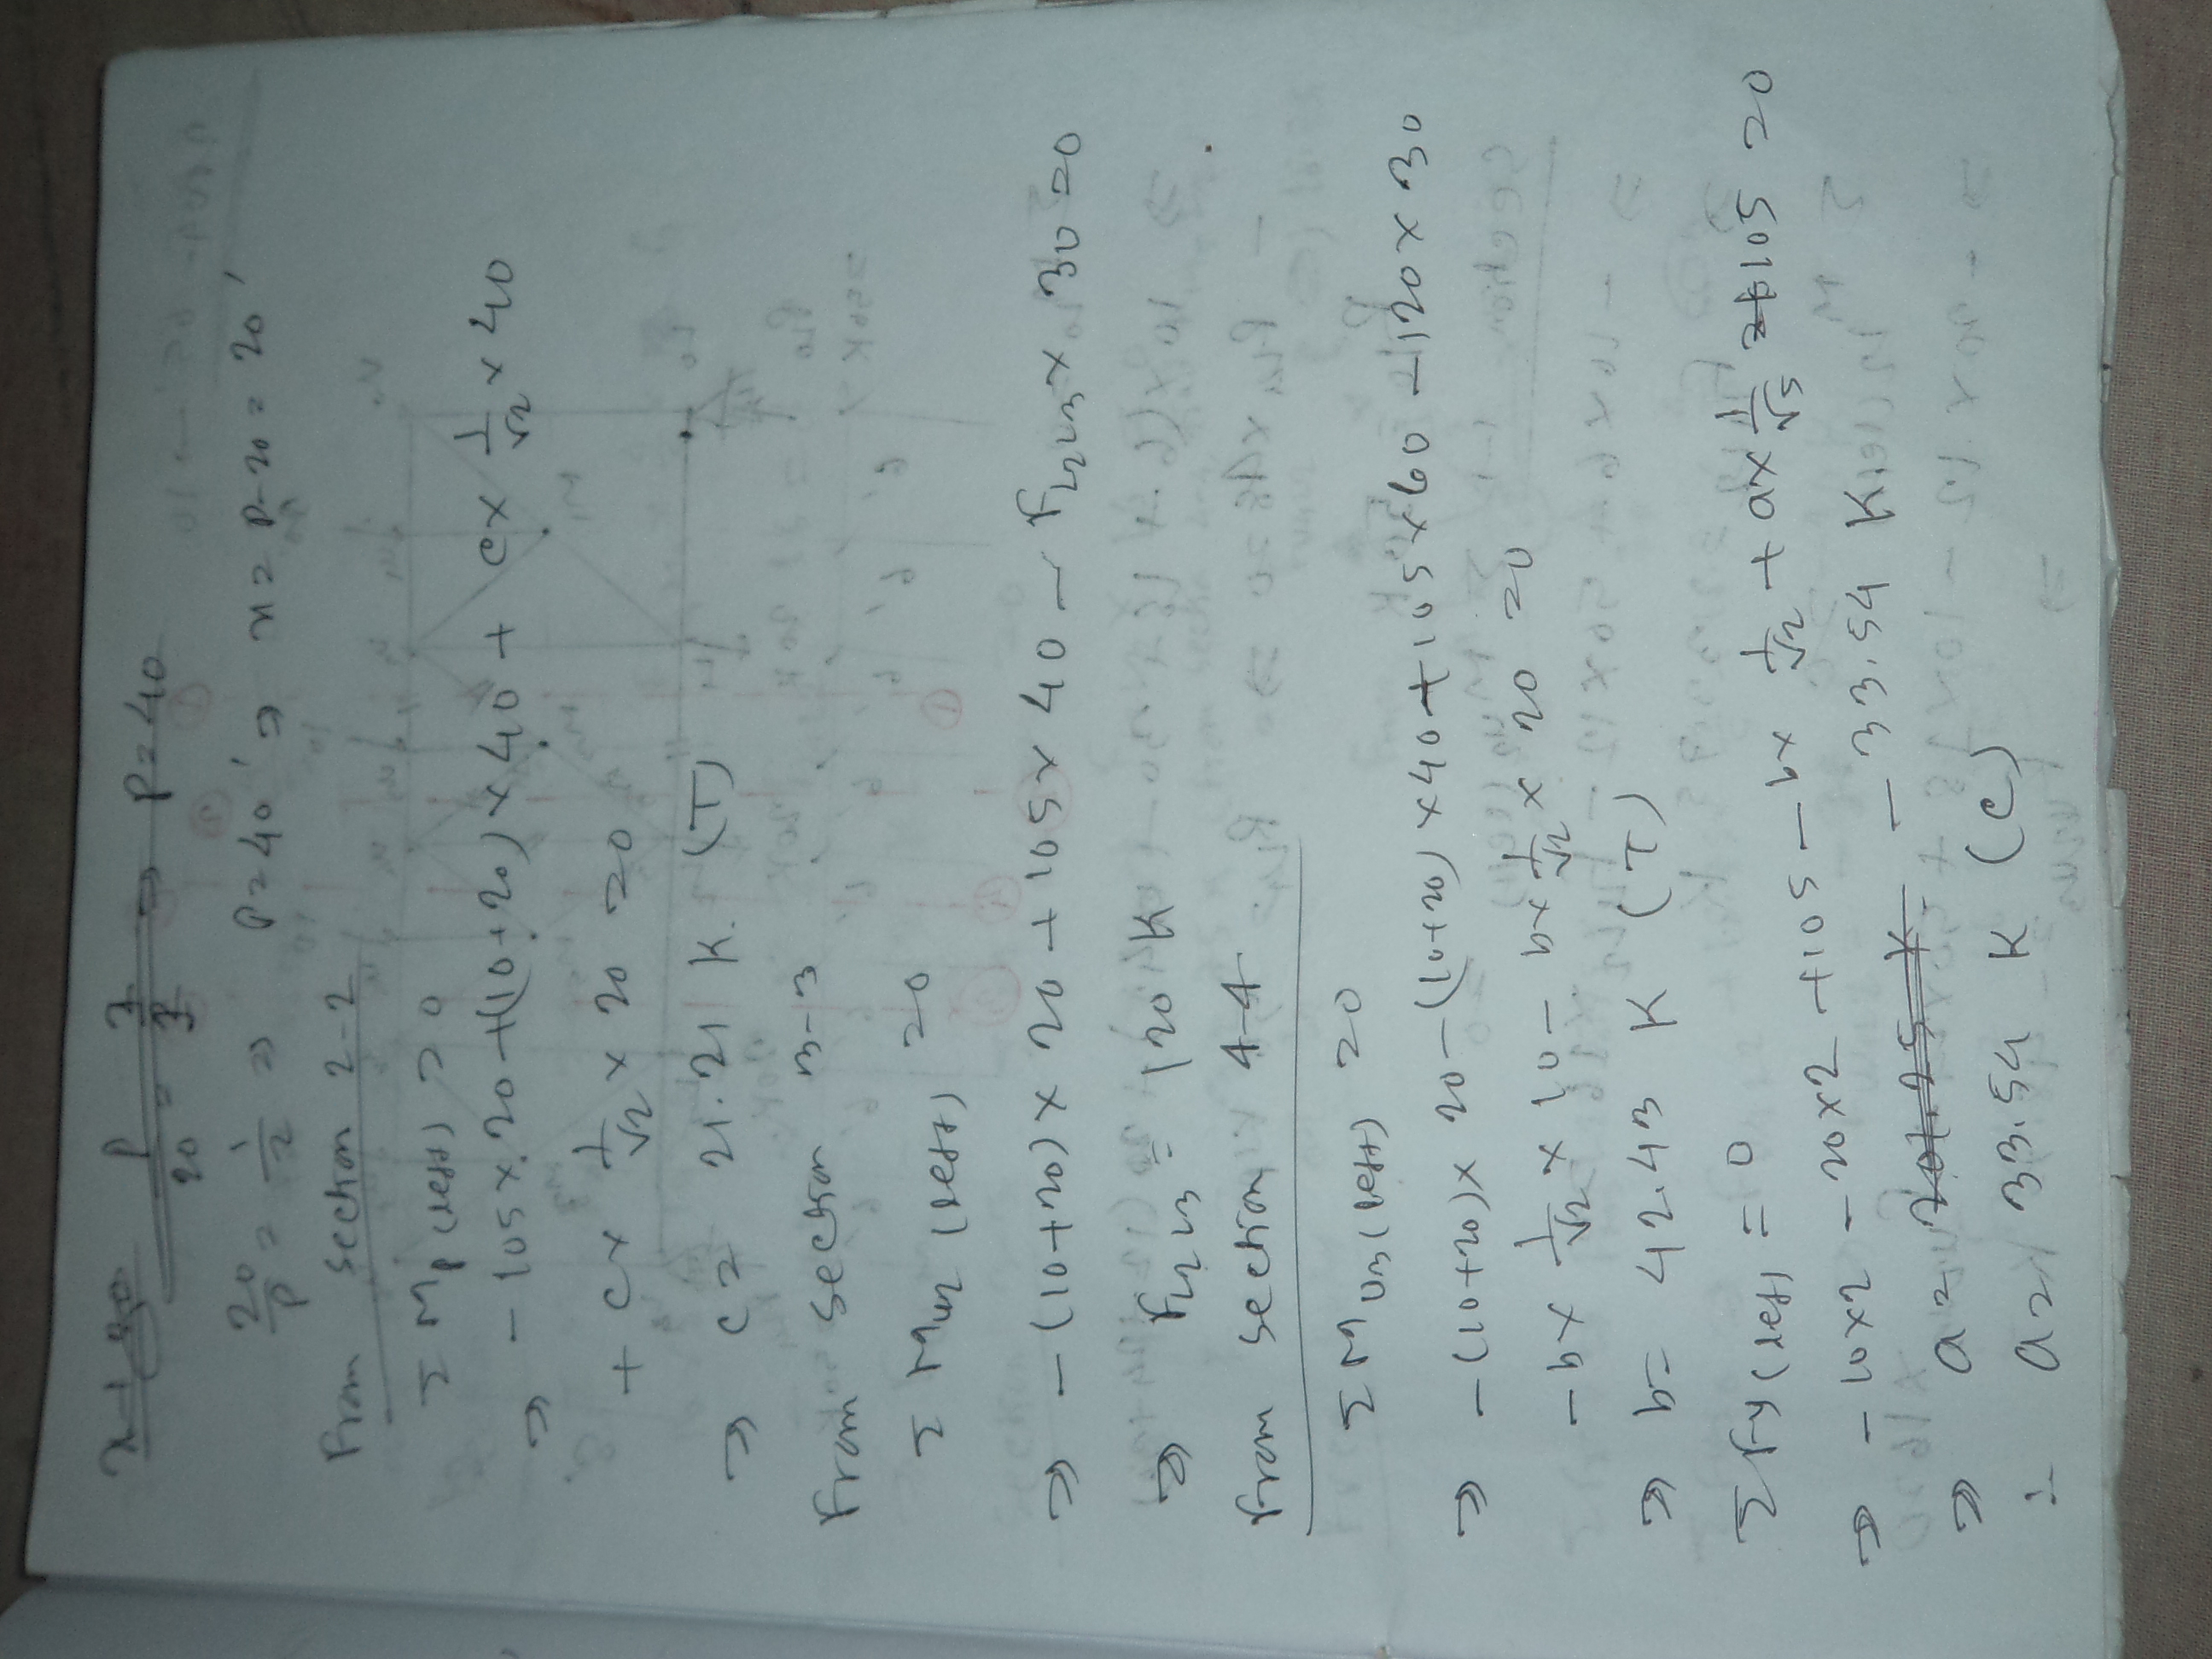 20/P = 1/2 ⇒ P = 40' ⇒ x = P-20 = 20'
From section 2-2
Σ Mp (left) = 0
⇒ - 105 × 20 + (10+20) × 40 + c × 1/√2 × 40
+ c × 1/√2 × 20 = 0
⇒ c = 21.21 K. (T)
From section 3-3
Σ Mu2 (left) = 0
⇒ - (10+20) × 20 + 105 × 40 - FL2L3 × 30 = 0
⇒ FL2L3 = 120 K
From section 4-4
Σ Mu3 (left) = 0
⇒ - (10+20) × 20 - (10+20) × 40 + 105 × 60 - 120 × 30
- b × 1/√2 × 10 - b × 1/√2 × 20 = 0
⇒ b = 42.43 K (T)
Σ Fy (left) = 0
⇒ - 10×2 - 20×2 + 105 - b × 1/√2 + a × 1/√5 = 0
⇒ a = - 33.54 K
∴ a = 33.54 K (C)